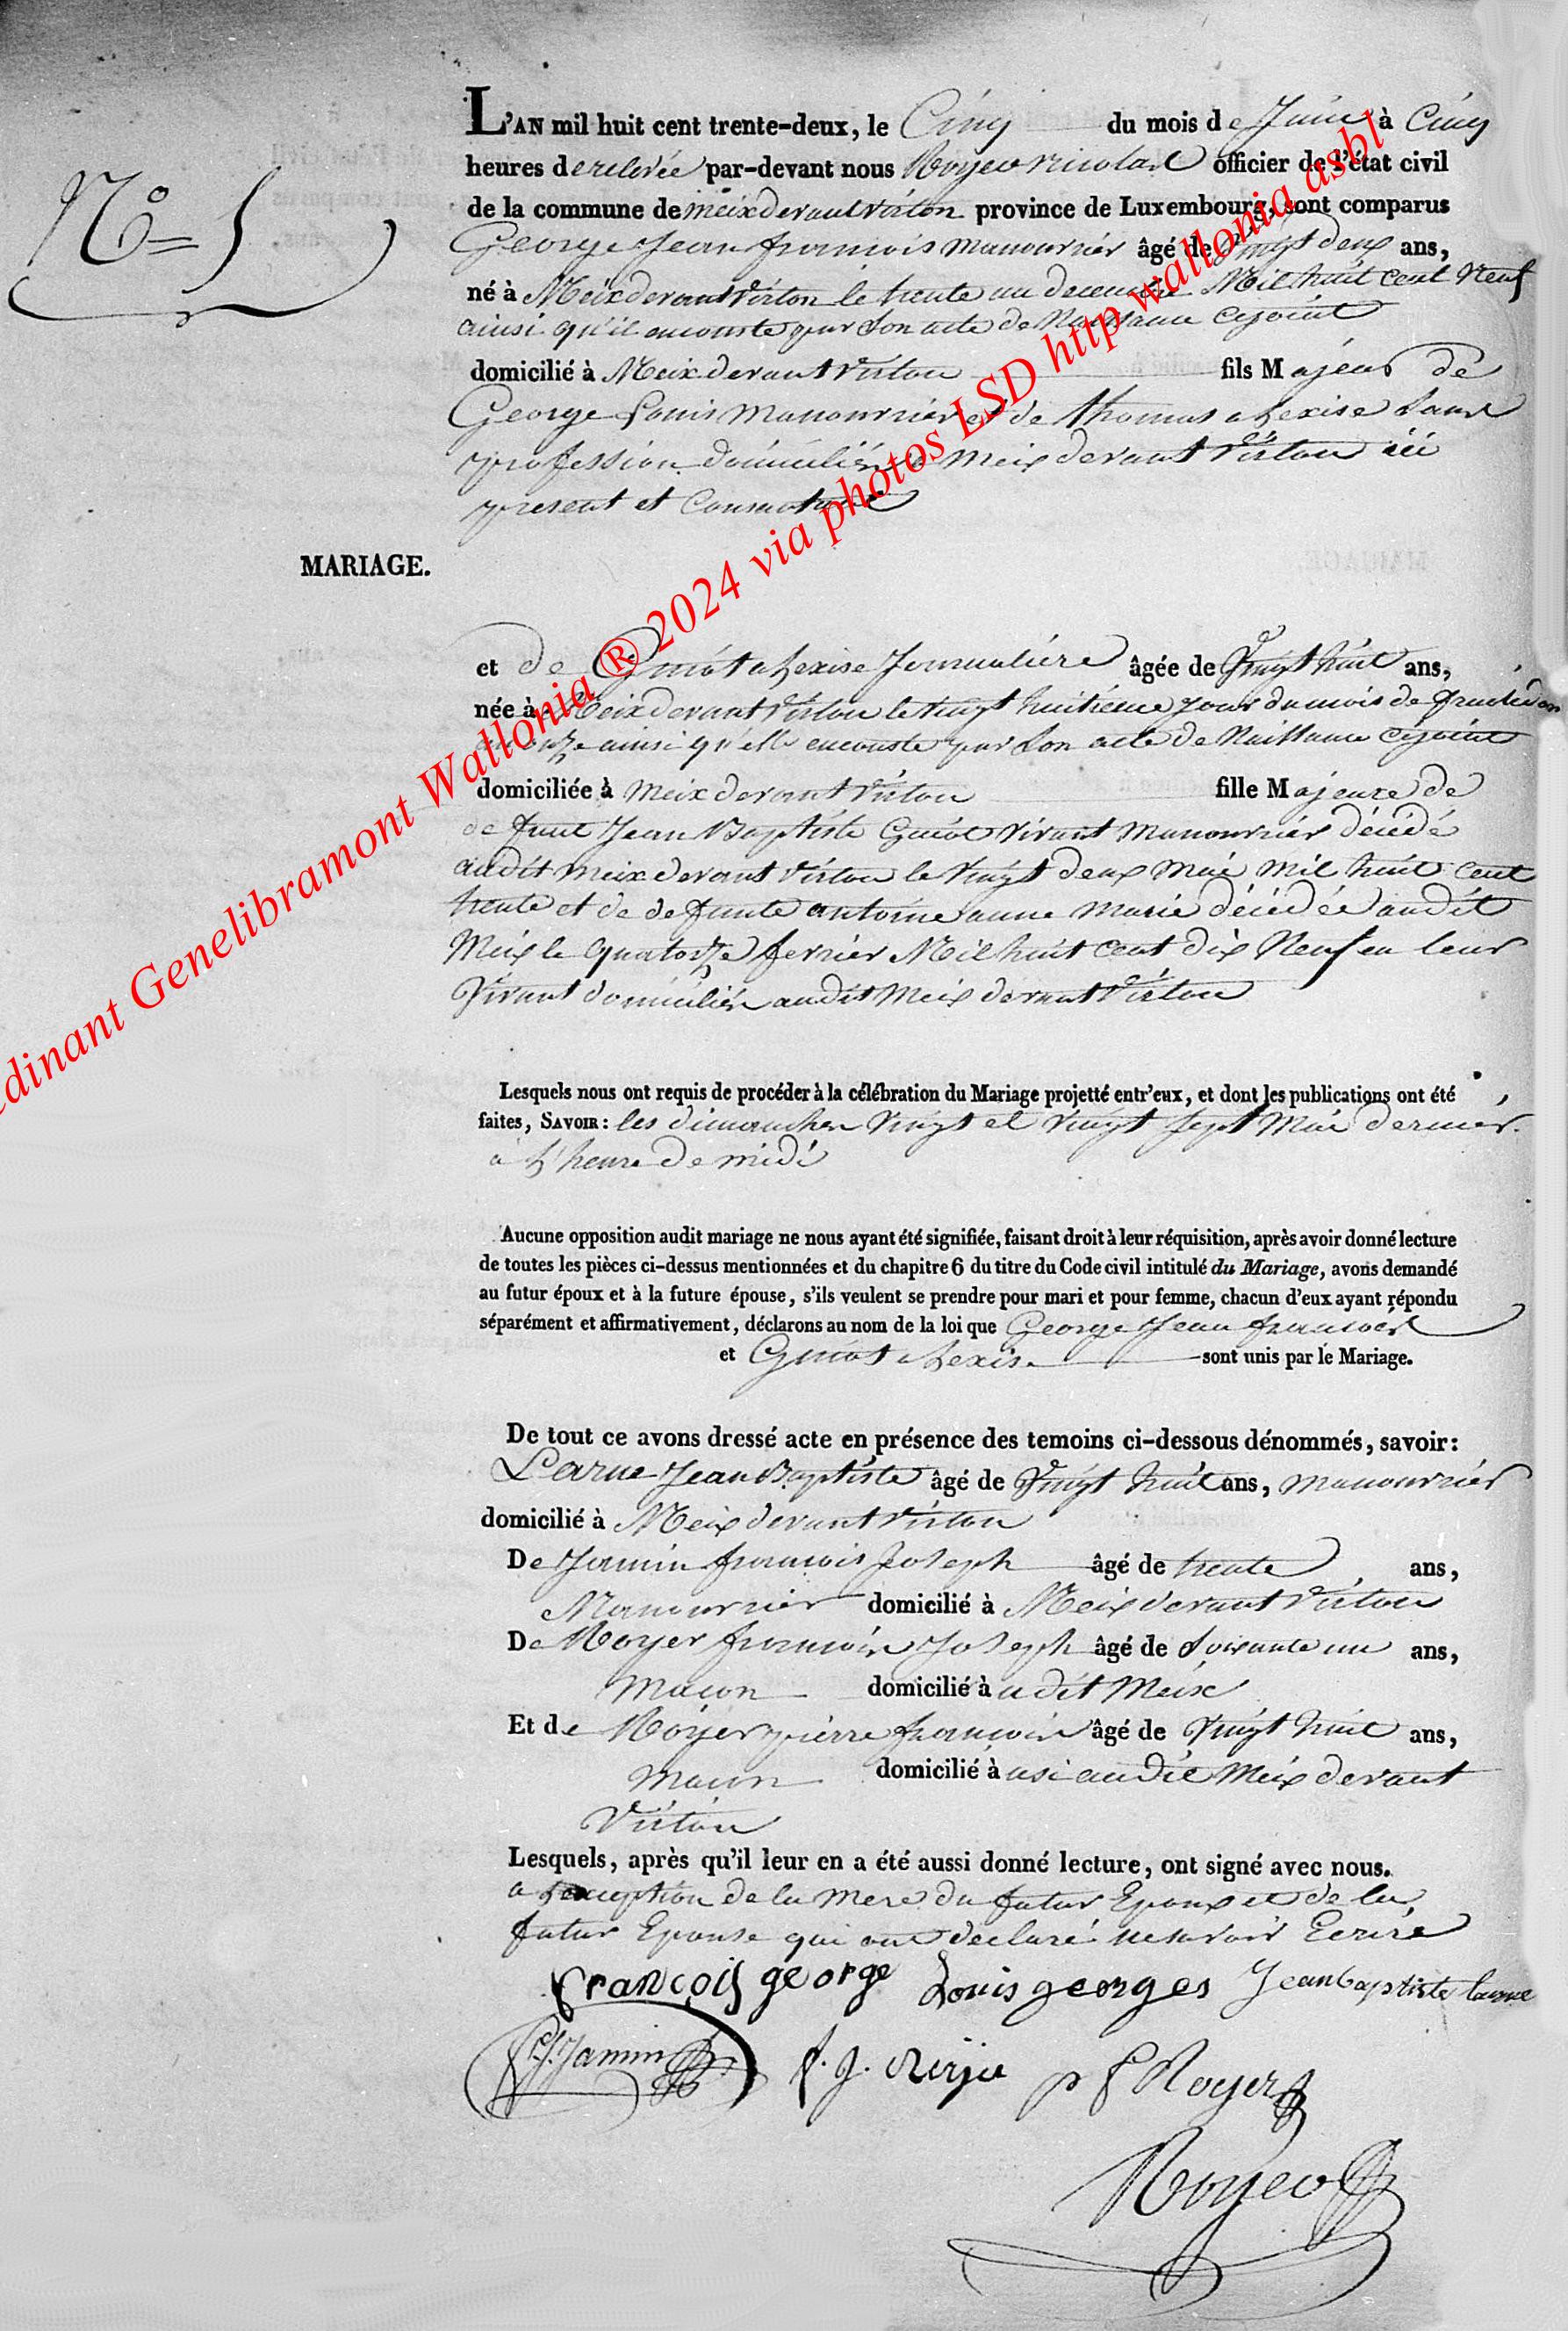 N° 5
L'AN mil huit cent trente-deux, le Cinq du mois de Juin à Cinq
heures de relevée par-devant nous Royer nicolas officier de l'état civil
de la commune de meix devant virton province de Luxembourg, sont comparus
George Jean francois manouvrier âgé de Vingt deux ans,
né à Meix devant Virton le trente un decembre Mil huit cent Neuf
ainsi qu'il enconste par son acte de Naissance cyjoint
domicilié à Meix devant virton fils Majeur de
George Louis manouvrier et de thomas alexise sans
profession domiciliés a Meix devant Virton ici
present et
MARIAGE.
et de Guiot alexise Journalière âgée de Vingt huit ans,
née à Meix devant Virton le vingt huitieme jour du mois de fructidor
an onze ainsi qu'elle enconste par son acte de Naissance cyjoint
domiciliée à Meix devant Virton fille Majeure de
de feut Jean Baptiste Guiot vivant manouvrier décédé
audit meix devant Virton le Vingt deux Mai mil huit cent
trente et de defunte antoine anne Marie décédée audit
Meix le quatorze fevrier Mil huit cent dix Neuf en leur
Vivant domiciliés audit Meix devant Virton
Lesquels nous ont requis de procéder à la célébration du Mariage projetté entr'eux, et dont les publications ont été
faites, SAVOIR: les dimanches Vingt et Vingt sept Mai dernier
a L'heure de midi
Aucune opposition audit mariage ne nous ayant été signifiée, faisant droit à leur réquisition, après avoir donné lecture
de toutes les pièces ci-dessus mentionnées et du chapitre 6 du titre du Code civil intitulé du Mariage, avons demandé
au futur époux et à la future épouse, s'ils veulent se prendre pour mari et pour femme, chacun d'eux ayant répondu
séparément et affirmativement, déclarons au nom de la loi que George Jean francois
et Guiot alexise sont unis par le Mariage.
De tout ce avons dressé acte en présence des temoins ci-dessous dénommés, savoir:
Larue Jean Baptiste âgé de Vingt huit ans, manouvrier
domicilié à Meix devant Virton
De Jamin francois Joseph âgé de trente ans,
Manouvrier domicilié à Meix devant Virton
De Royer francois Joseph âgé de Soixante un ans,
macon domicilié à udit Meix
Et de Royer pierre francois âgé de Vingt huit ans,
macon domicilié à usi audit Meix devant
Virton
Lesquels, après qu'il leur en a été aussi donné lecture, ont signé avec nous.
a Lexception de la mere du futur Epoux et de la
futur Epouse qui ont declaré ne savoir Ecrire
françois george Louis georges Jean baptiste larue
f.J. Jamin f. J. p f Royer
Royer
dinant Genelibramont Wallonia ® 2024 via photos LSD http wallonia asbl